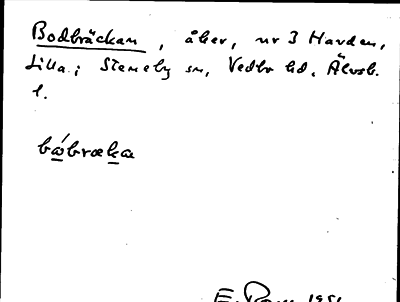 Bodbräckan, åker, nr 3 Harden,
Lilla; Steneby sn, Vedbo hd, Älvsb.
l.
bǻbræka
E. 1951